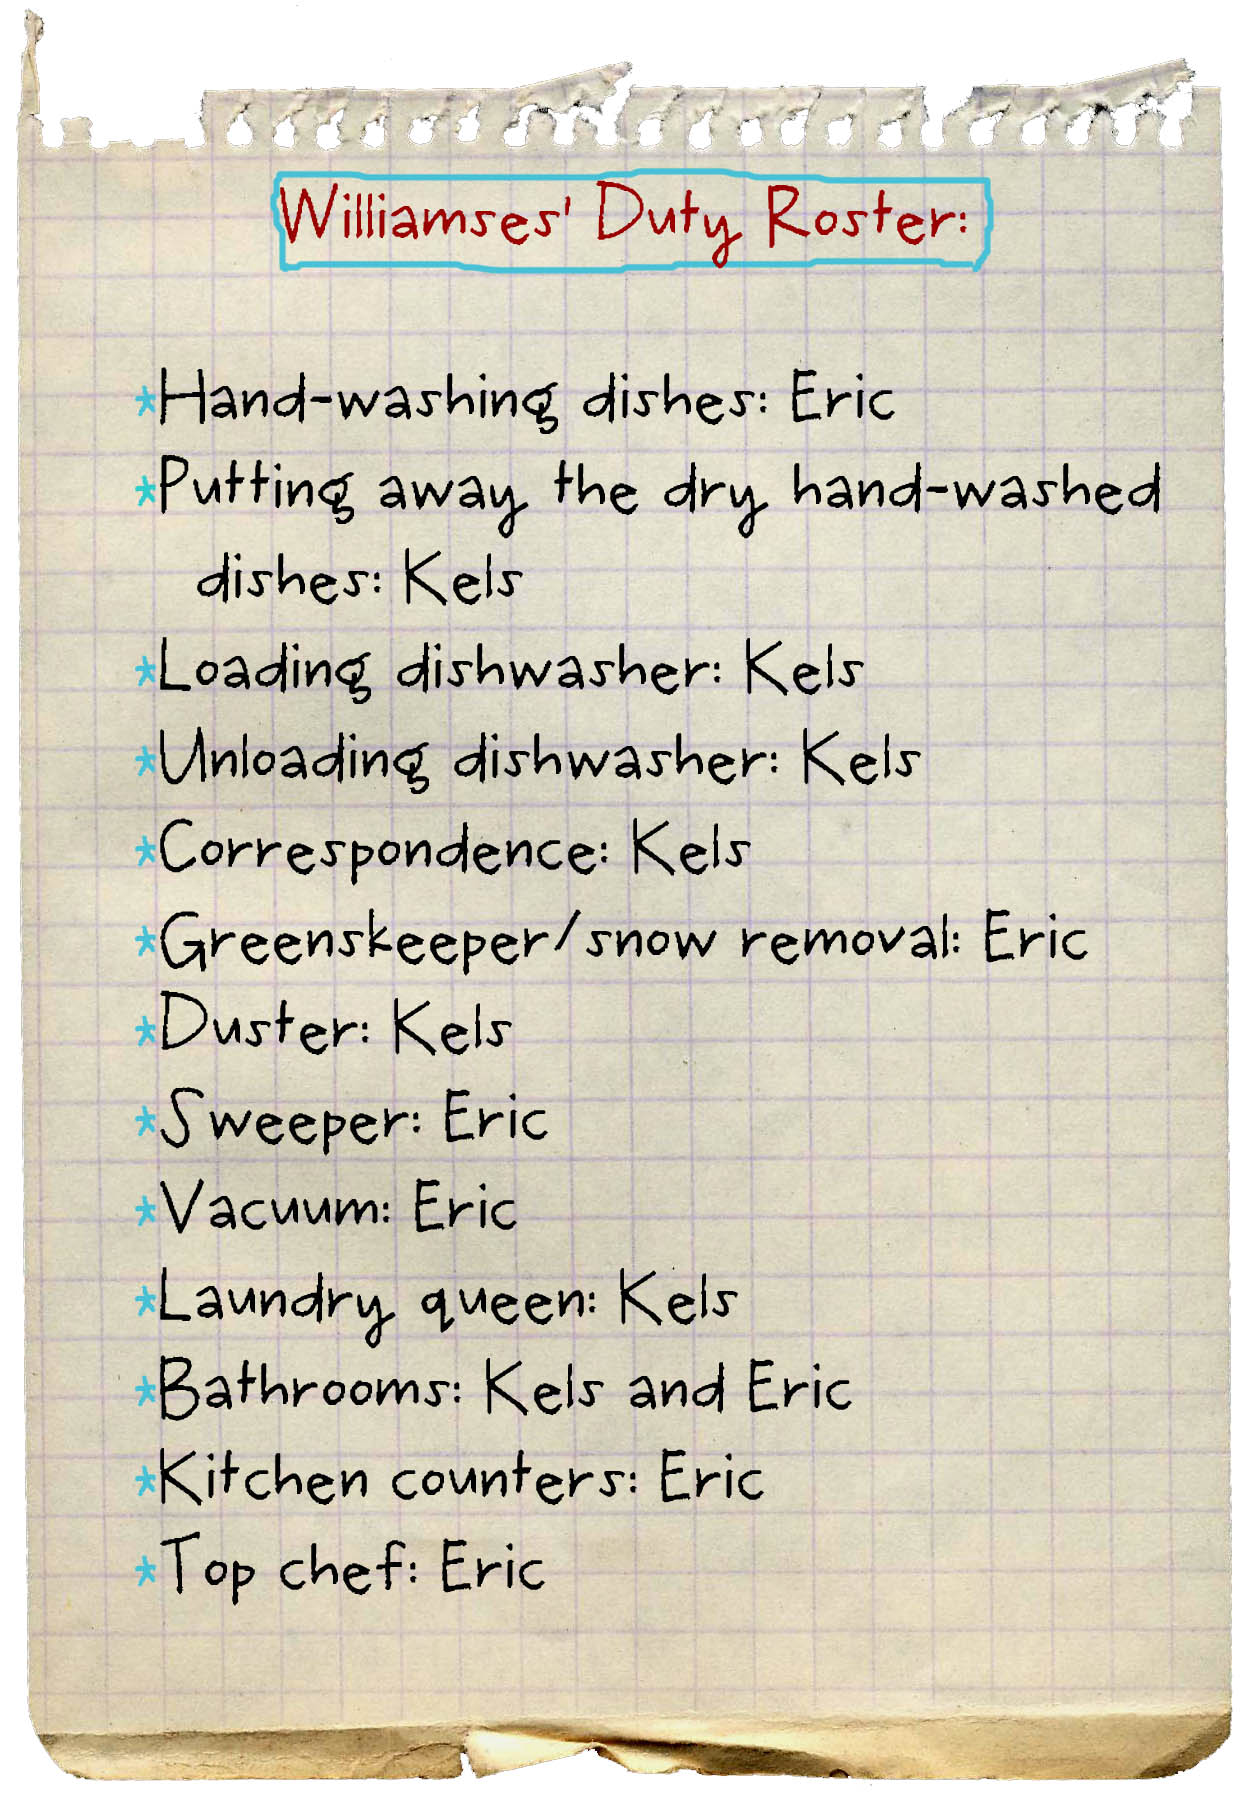 Williamses' Duty Roster:
*Hand-washing dishes: Eric
*Putting away the dry hand-washed
dishes: Kels
*Loading dishwasher: Kels
*Unloading dishwasher: Kels
*Correspondence: Kels
*Greenskeeper/snow removal: Eric
*Duster: Kels
*Sweeper: Eric
*Vacuum: Eric
*Laundry queen: Kels
*Bathrooms: Kels and Eric
*Kitchen counters: Eric
*Top chef: Eric